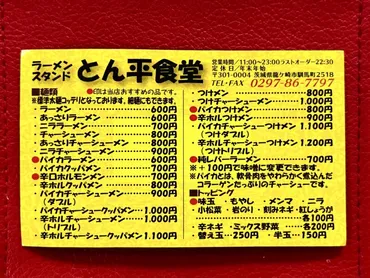 ラーメン
スタンド とん平食堂
営業時間/11:00~23:00ラストオーダー22:30
定休日/年末年始
〒301-0004 茨城県龍ケ崎市馴馬町2518
TEL・FAX 0297-86-7797
■麺類 ●印は当店おすすめの品です。
※標準太麺コッテリとなっております。細麺にもできます。
・ラーメン 600円
・あっさりラーメン 600円
・ニララーメン 700円
・チャーシューメン 800円
・あっさりチャーシューメン 800円
・ニラチャーシューメン 900円
●バイカラーメン 600円
・バイカクッパメン 700円
●辛口ホルモンメン 700円
・辛ホルクッパメン 800円
・バイカチャーシュークッパメン 900円
(ダブル)
・バイカチャーシュークッパメン 1.000円
・辛ホルチャーシュークッパメン 1.000円
(トリプル)
・辛ホルチャーシュークッパメン 1.100円
・つけメン 800円
・つけチャーシューメン 1.000円
●バイカつけメン 800円
●辛ホルつけメン 900円
・バイカチャーシューつけメン 1.100円
(つけダブル)
・辛ホルチャーシューつけメン 1.200円
(つけトリプル)
●純レバラーメン 700円
※+100円で味噌に変更できます。
※バイカとは、軟骨肉をやわらかく煮込んだ
コラーゲンたっぷりのチャーシューです。
■トッピング
●味玉・もやし・メンマ・ニラ
・小松菜・岩のり・刻みネギ・紅しょうが
各100円
・辛ネギ・ミックス野菜 各200円
・替え玉 250円 ・半玉 150円